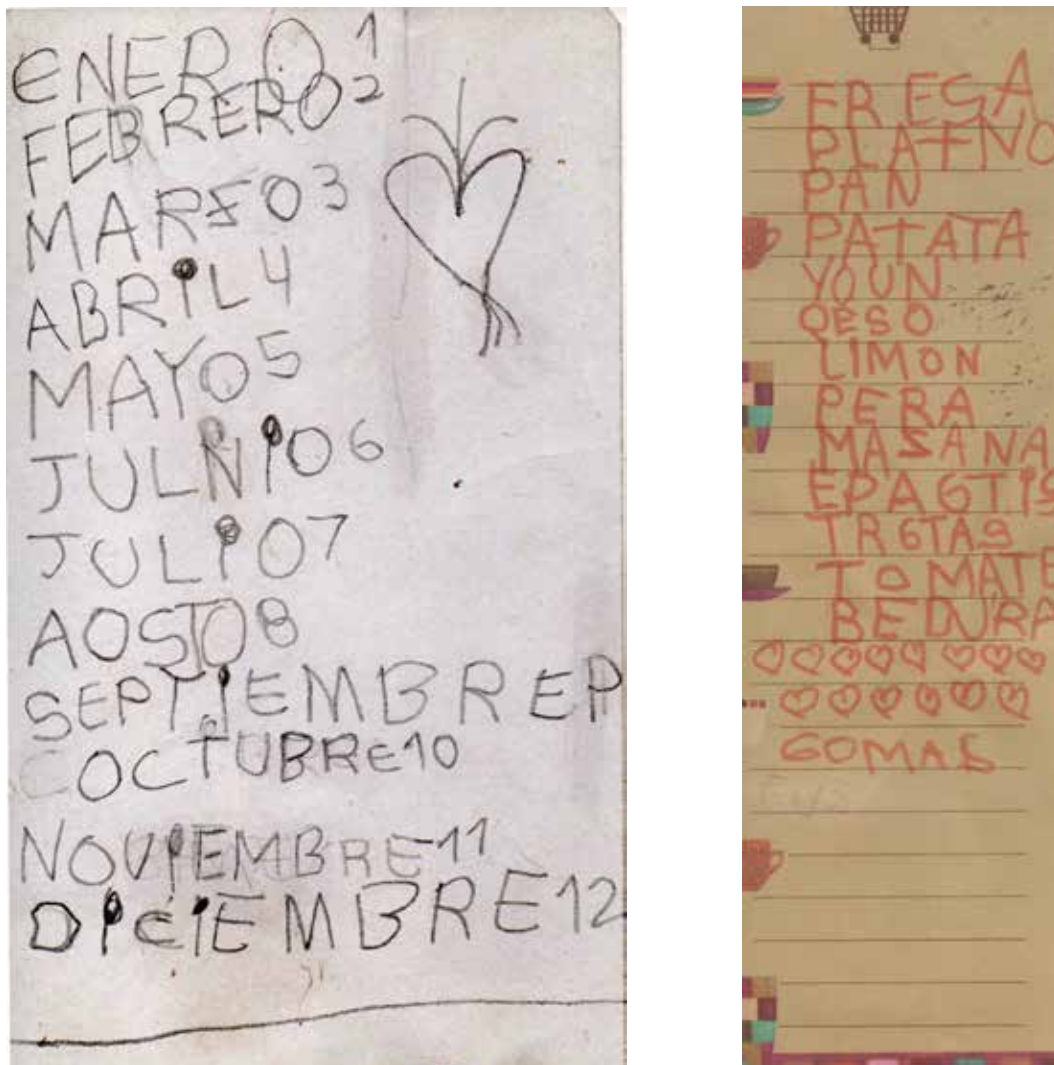 ENERO 1
FEBRERO 2
MARZO 3
ABRIL 4
MAYO 5
JULNIO 6
JULIO 7
AOSTO 8
SEPTIEMBRE P
OCTUBRE 10
NOVIEMBRE 11
DICIEMBRE 12
FRESA
PLATNO
PAN
PATATA
YOUN
QESO
LIMON
PERA
MASANA
EPAGTIS
TRGTAS
TOMATE
BEDURA
GOMAS